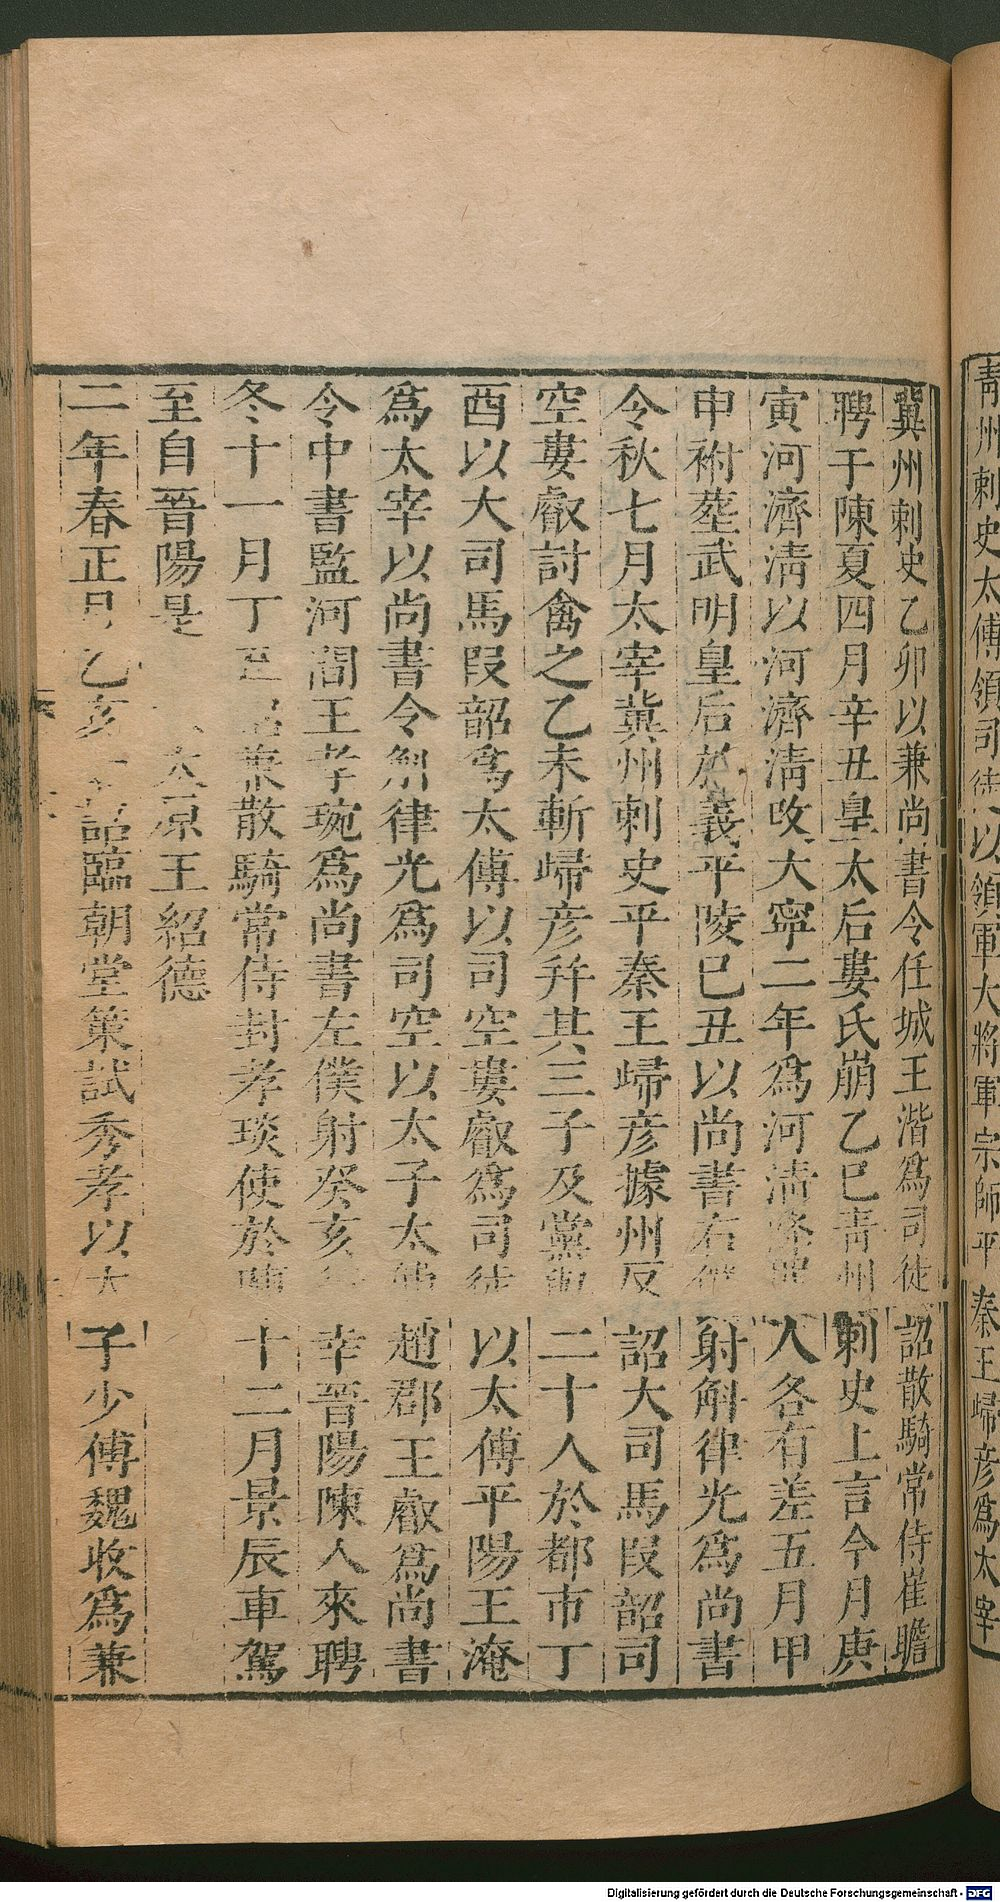 青州刺史太傅領司徒以領軍大將軍宗師平秦王歸彥爲太宰
冀州刺史乙卯以兼尚書令任城王湝爲司徒詔散騎常侍崔瞻
聘于陳夏四月辛丑皇太后婁氏崩乙巳青州刺史上言今月庚
寅河濟清以河濟清改大寧二年爲河清人各有差五月甲
申祔葬武明皇后於義平陵巳丑以尚書右射斛律光爲尚書
令秋七月太宰冀州刺史平秦王歸彥據州反詔大司馬叚韶司
空婁叡討禽之乙未斬歸彥幷其三子及黨二十人於都市丁
酉以大司馬叚韶爲太傅以司空婁叡爲司徒以太傅平陽王淹
爲太宰以尚書令斛律光爲司空以太子太趙郡王叡爲尚書
令中書監河間王孝琬爲尚書左僕射癸亥幸晉陽陳人來聘
冬十一月丁兼散騎常侍封孝琰使於十二月景辰車駕
至自晉陽是太原王紹德
二年春正月乙亥詔臨朝堂策試秀孝以太子少傅魏收爲兼
Digitalisierung gefördert durch die Deutsche Forschungsgemeinschaft - DFG